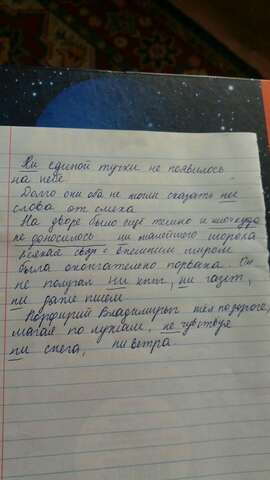 Ни единой тучки не появилось
на небе.
Долго они оба не могли сказать ни
слова от смеха
На дворе было ещё темно и ниоткуда
не доносилось ни малейшего шороха
Всякая связь с внешним миром
была окончательно порвана. Он
не получал ни книг, ни газет,
ни даже писем
Порфирий Владимирыч шёл по дороге,
шагая по лужам, не чувствуя
ни снега, ни ветра.